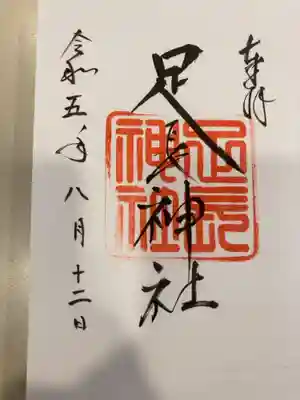 奉拝
足長神社
足長神社
令和五年八月十二日